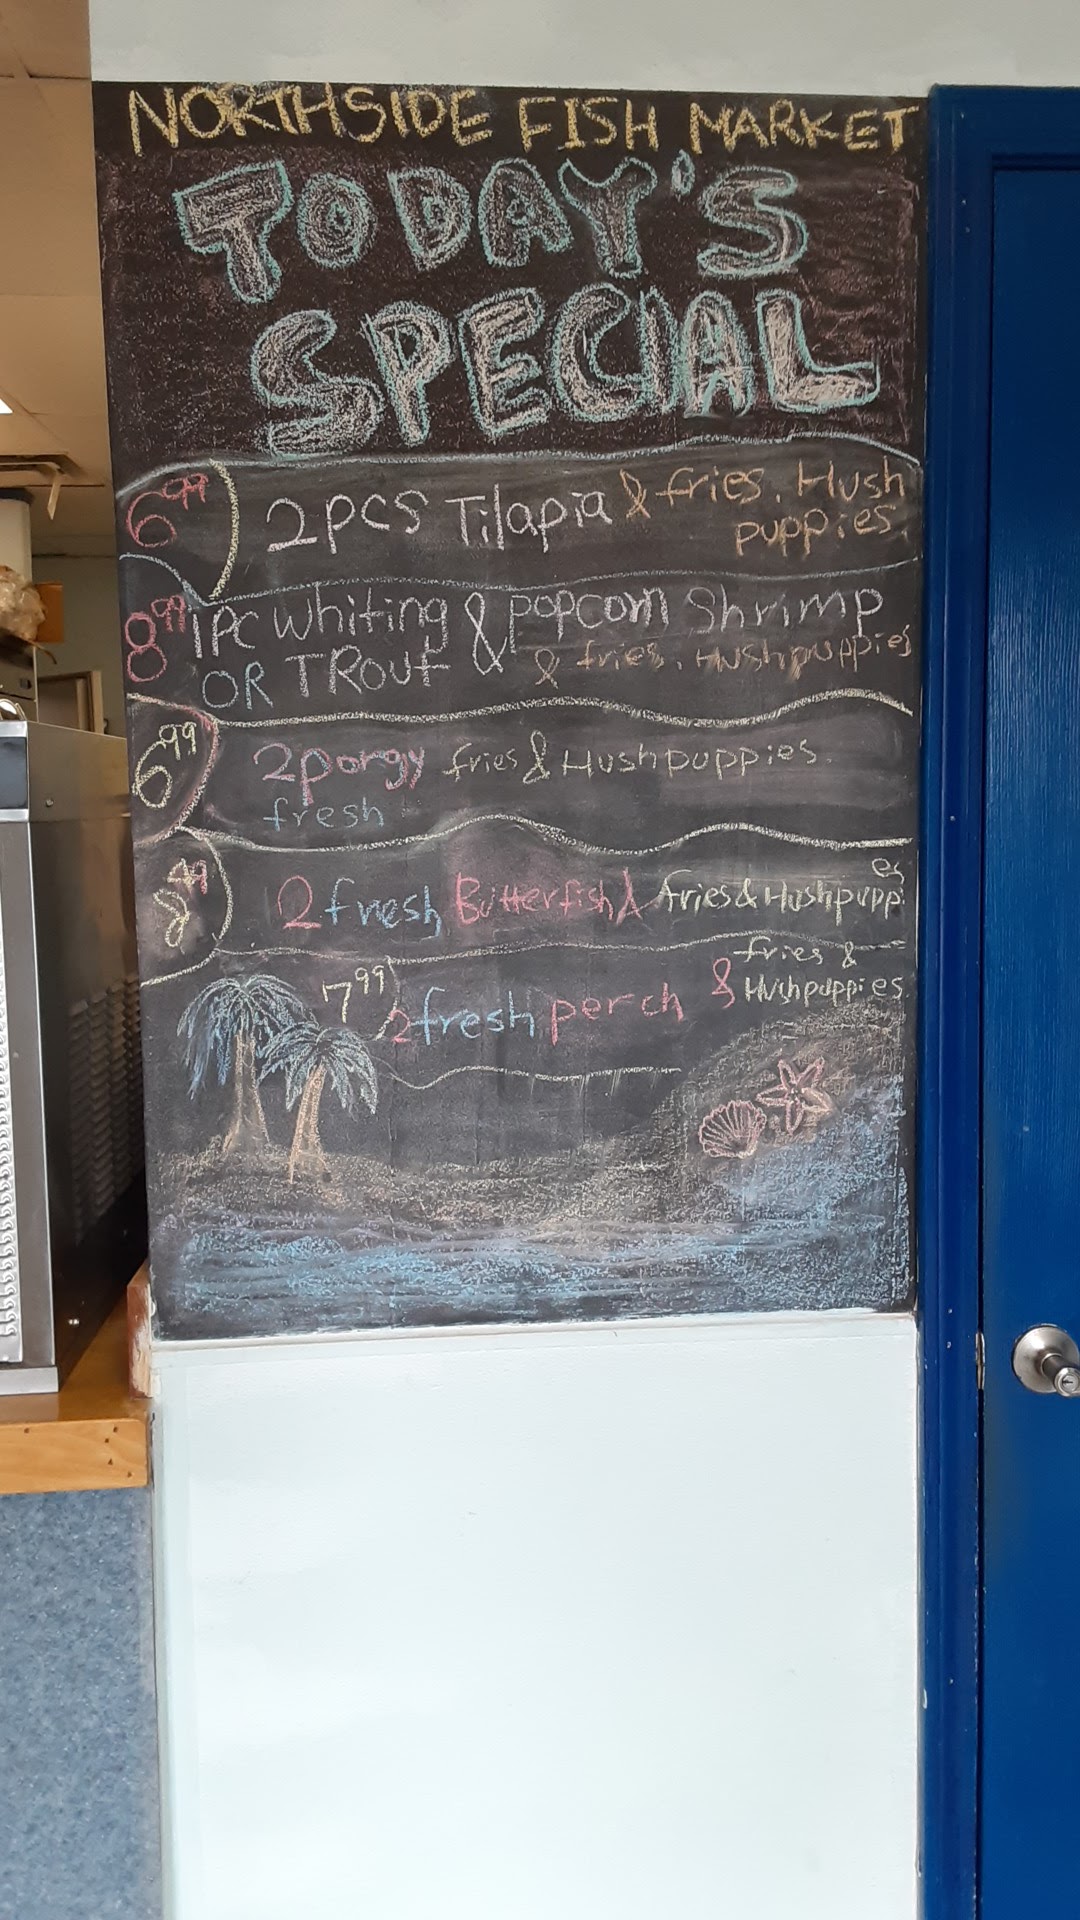 NORTHSIDE FISH MARKET
TODAY'S
SPECIAL
6.99 2pcs Tilapia & fries, Hush
puppies
8.99 1PC whiting & popcorn Shrimp
OR TROUT & fries, Hushpuppies
6.99 2porgy fries & Hushpuppies.
fresh
2 fresh Butterfish & fries & Hushpuppies
7.99 2 fresh perch & fries &
Hushpuppies